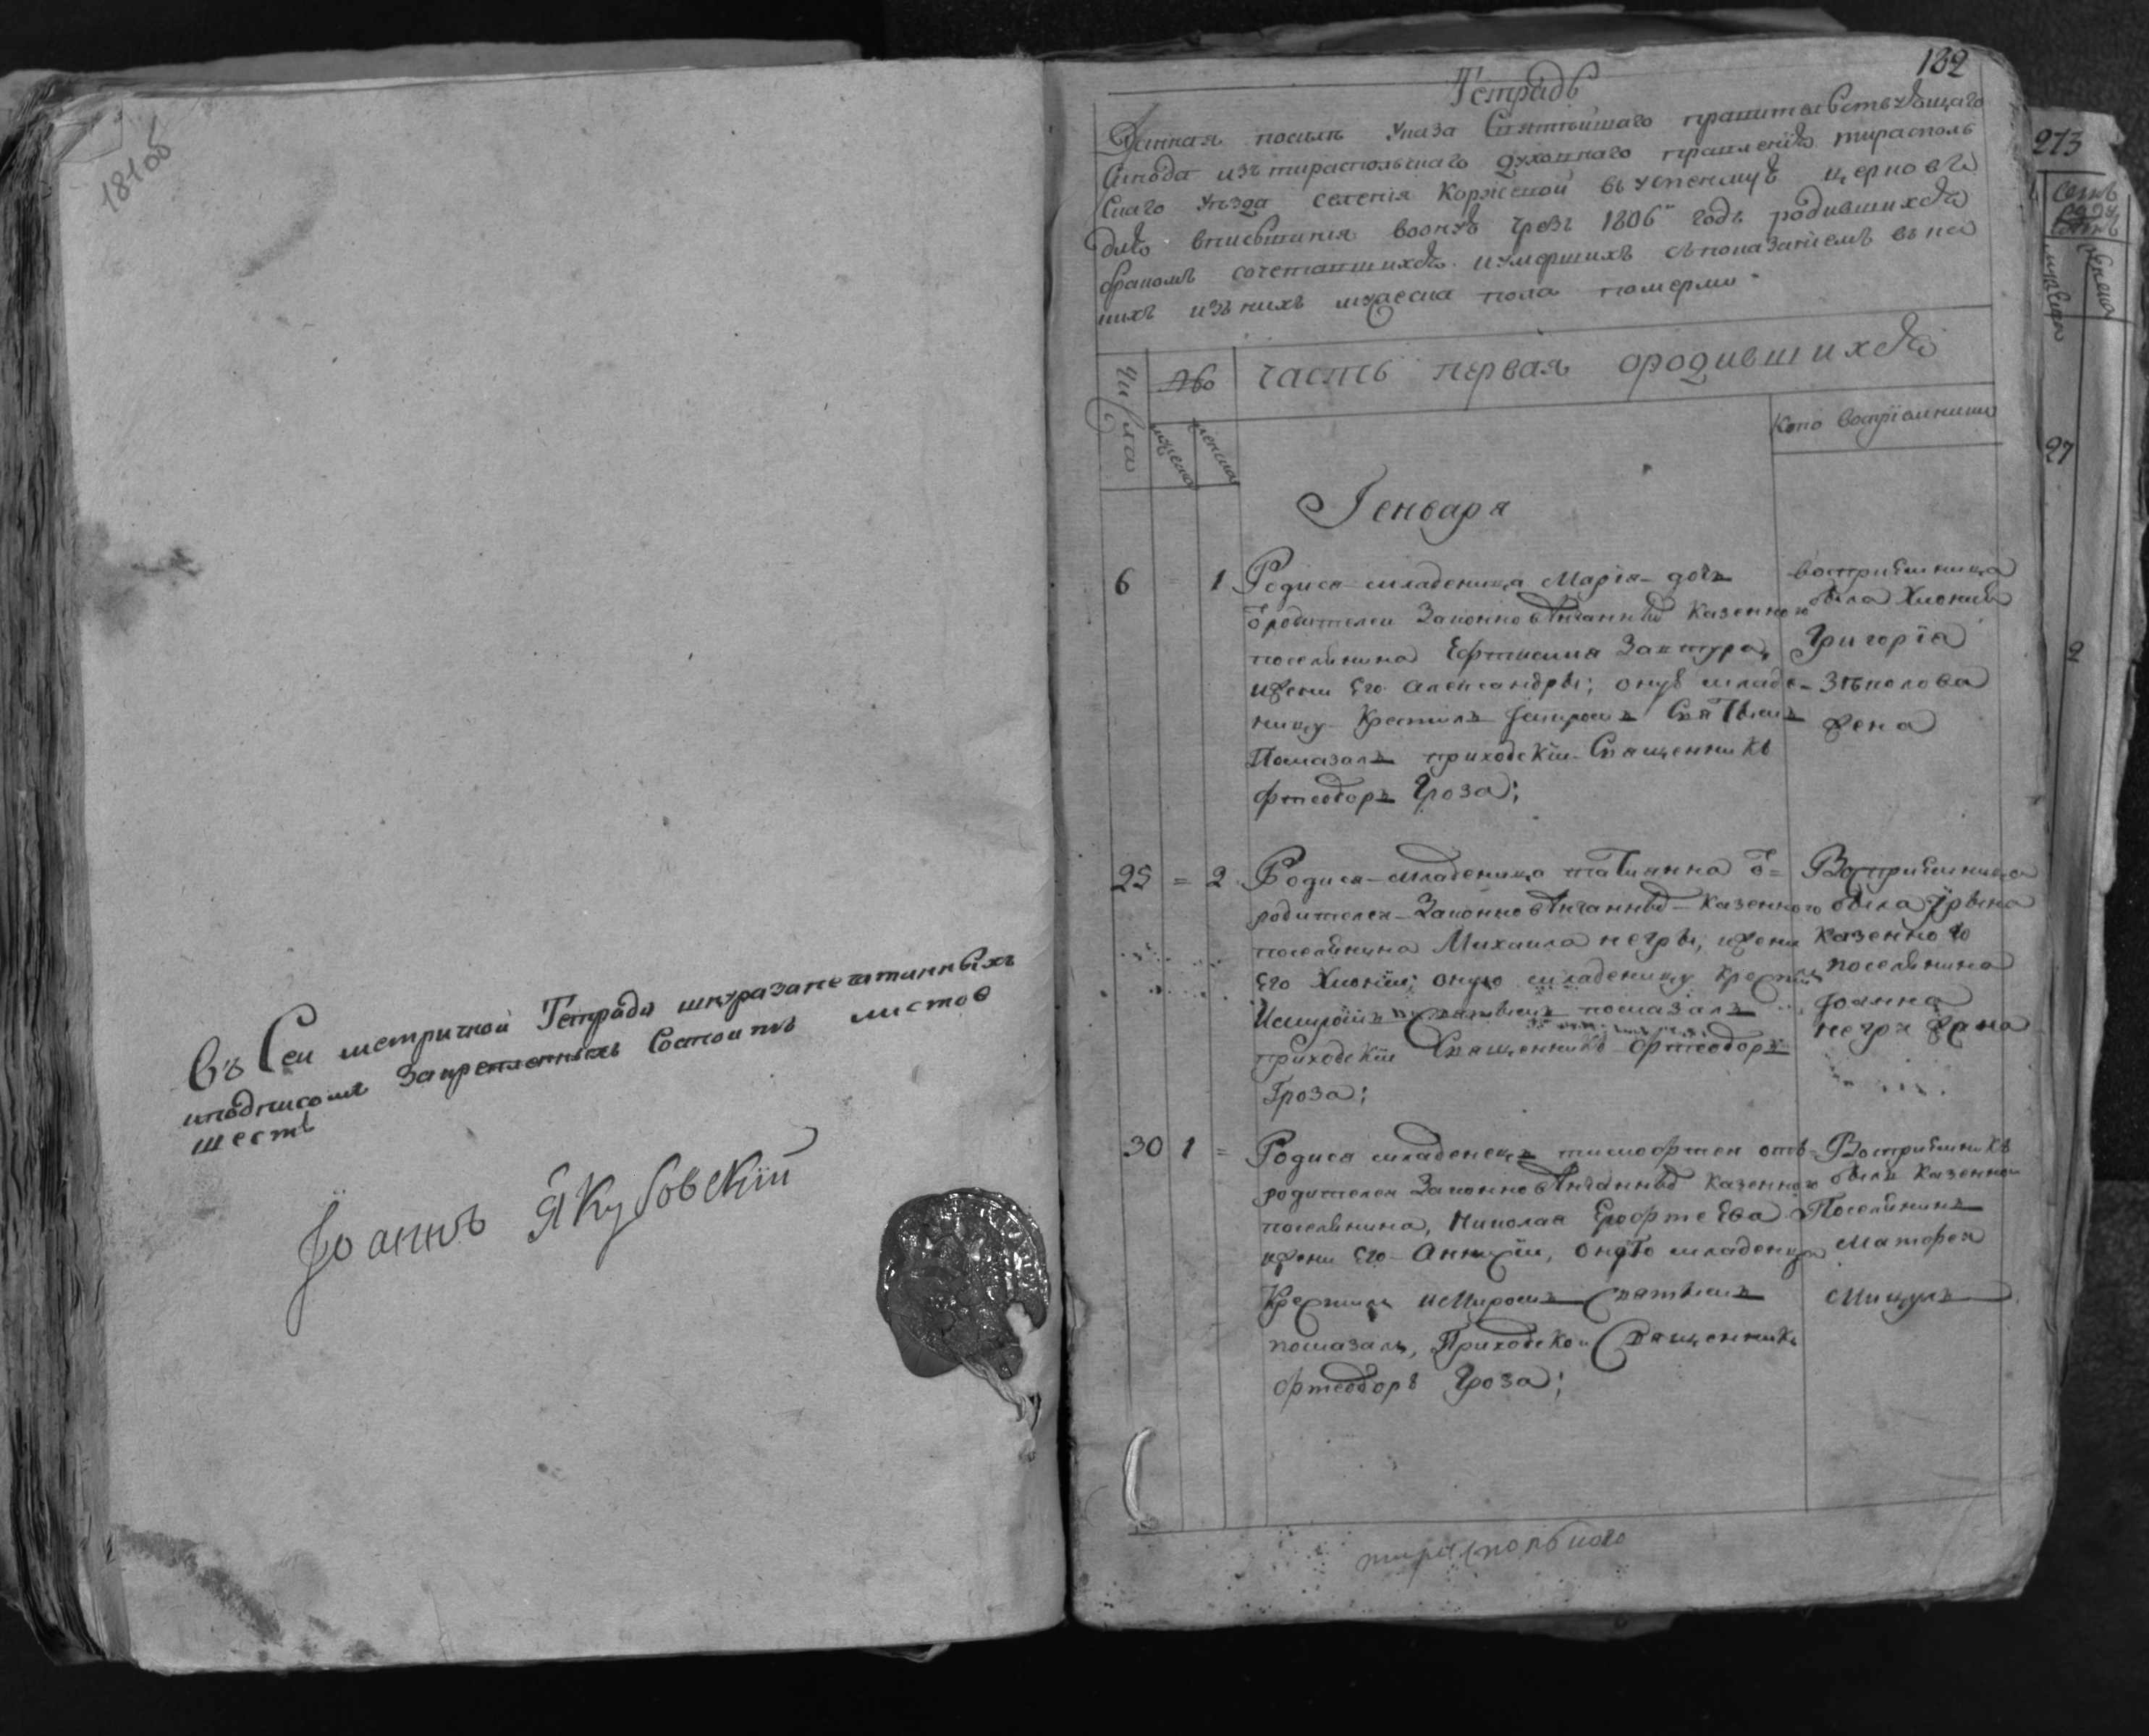 181об
Въ Сей метричной Тетради шнурозапечатанныхъ
иподписомъ Закрепленныхъ Состоитъ листов
шесть
Іоаннъ Якубовскій
182
Тетрадь
Данная посилѣ Указа Святѣйшаго правительствующаго
Синода изъ тираспольскаго духовнаго правленія тирасполь
Скаго Уѣзда селенія Коржевой въ успенскую церковь
для вписыванія воону чрезъ 1806й годъ родившихся
бракомъ сочетавшихся иумершихъ съпоказаніемъ
изъ нихъ мужеска пола
Числа
часть первая ородившихся
мужеска
женска
Кто восприемники
Генваря
6 1 Родися младеница Марія дочь
родителей Законновѣнчанныхъ Казенного
поселянина Ефтимия
иЖени Его Александры; оную младе-
ницу Крестилъ Имиромъ Святымъ
Помазалъ приходскій Священникъ
Фтеодоръ Гроза;
восприемница
была Хиония
Григорія
Жена
25 = 2 Родися младеница таТиянна ѿ=
родителей Законновѣнчанныхъ Казенного
поселянина Михаила негры, иЖени
Его Хионіи; оную младеницу Крестилъ
Имиромъ Святымъ помазалъ
приходскій Священникъ Фтеодоръ
Гроза;
Восприемница
была Ирина
Казенного
поселянина
Іоанна
негри Жена
30 1 = Родися младенецъ тимофтей отъ
родителей Законновѣнчанныхъ Казенного
поселянина, Николая ЕрофтеЕва
иЖени Его Анны, оного младенца
Крестилъ иМиромъ Святымъ
помазалъ, Приходской Священникъ
Фтеодоръ Гроза;
Восприемникъ
былъ Казенной
Поселянинъ
Матфей
Мицулъ
тираспольского
273
27
2